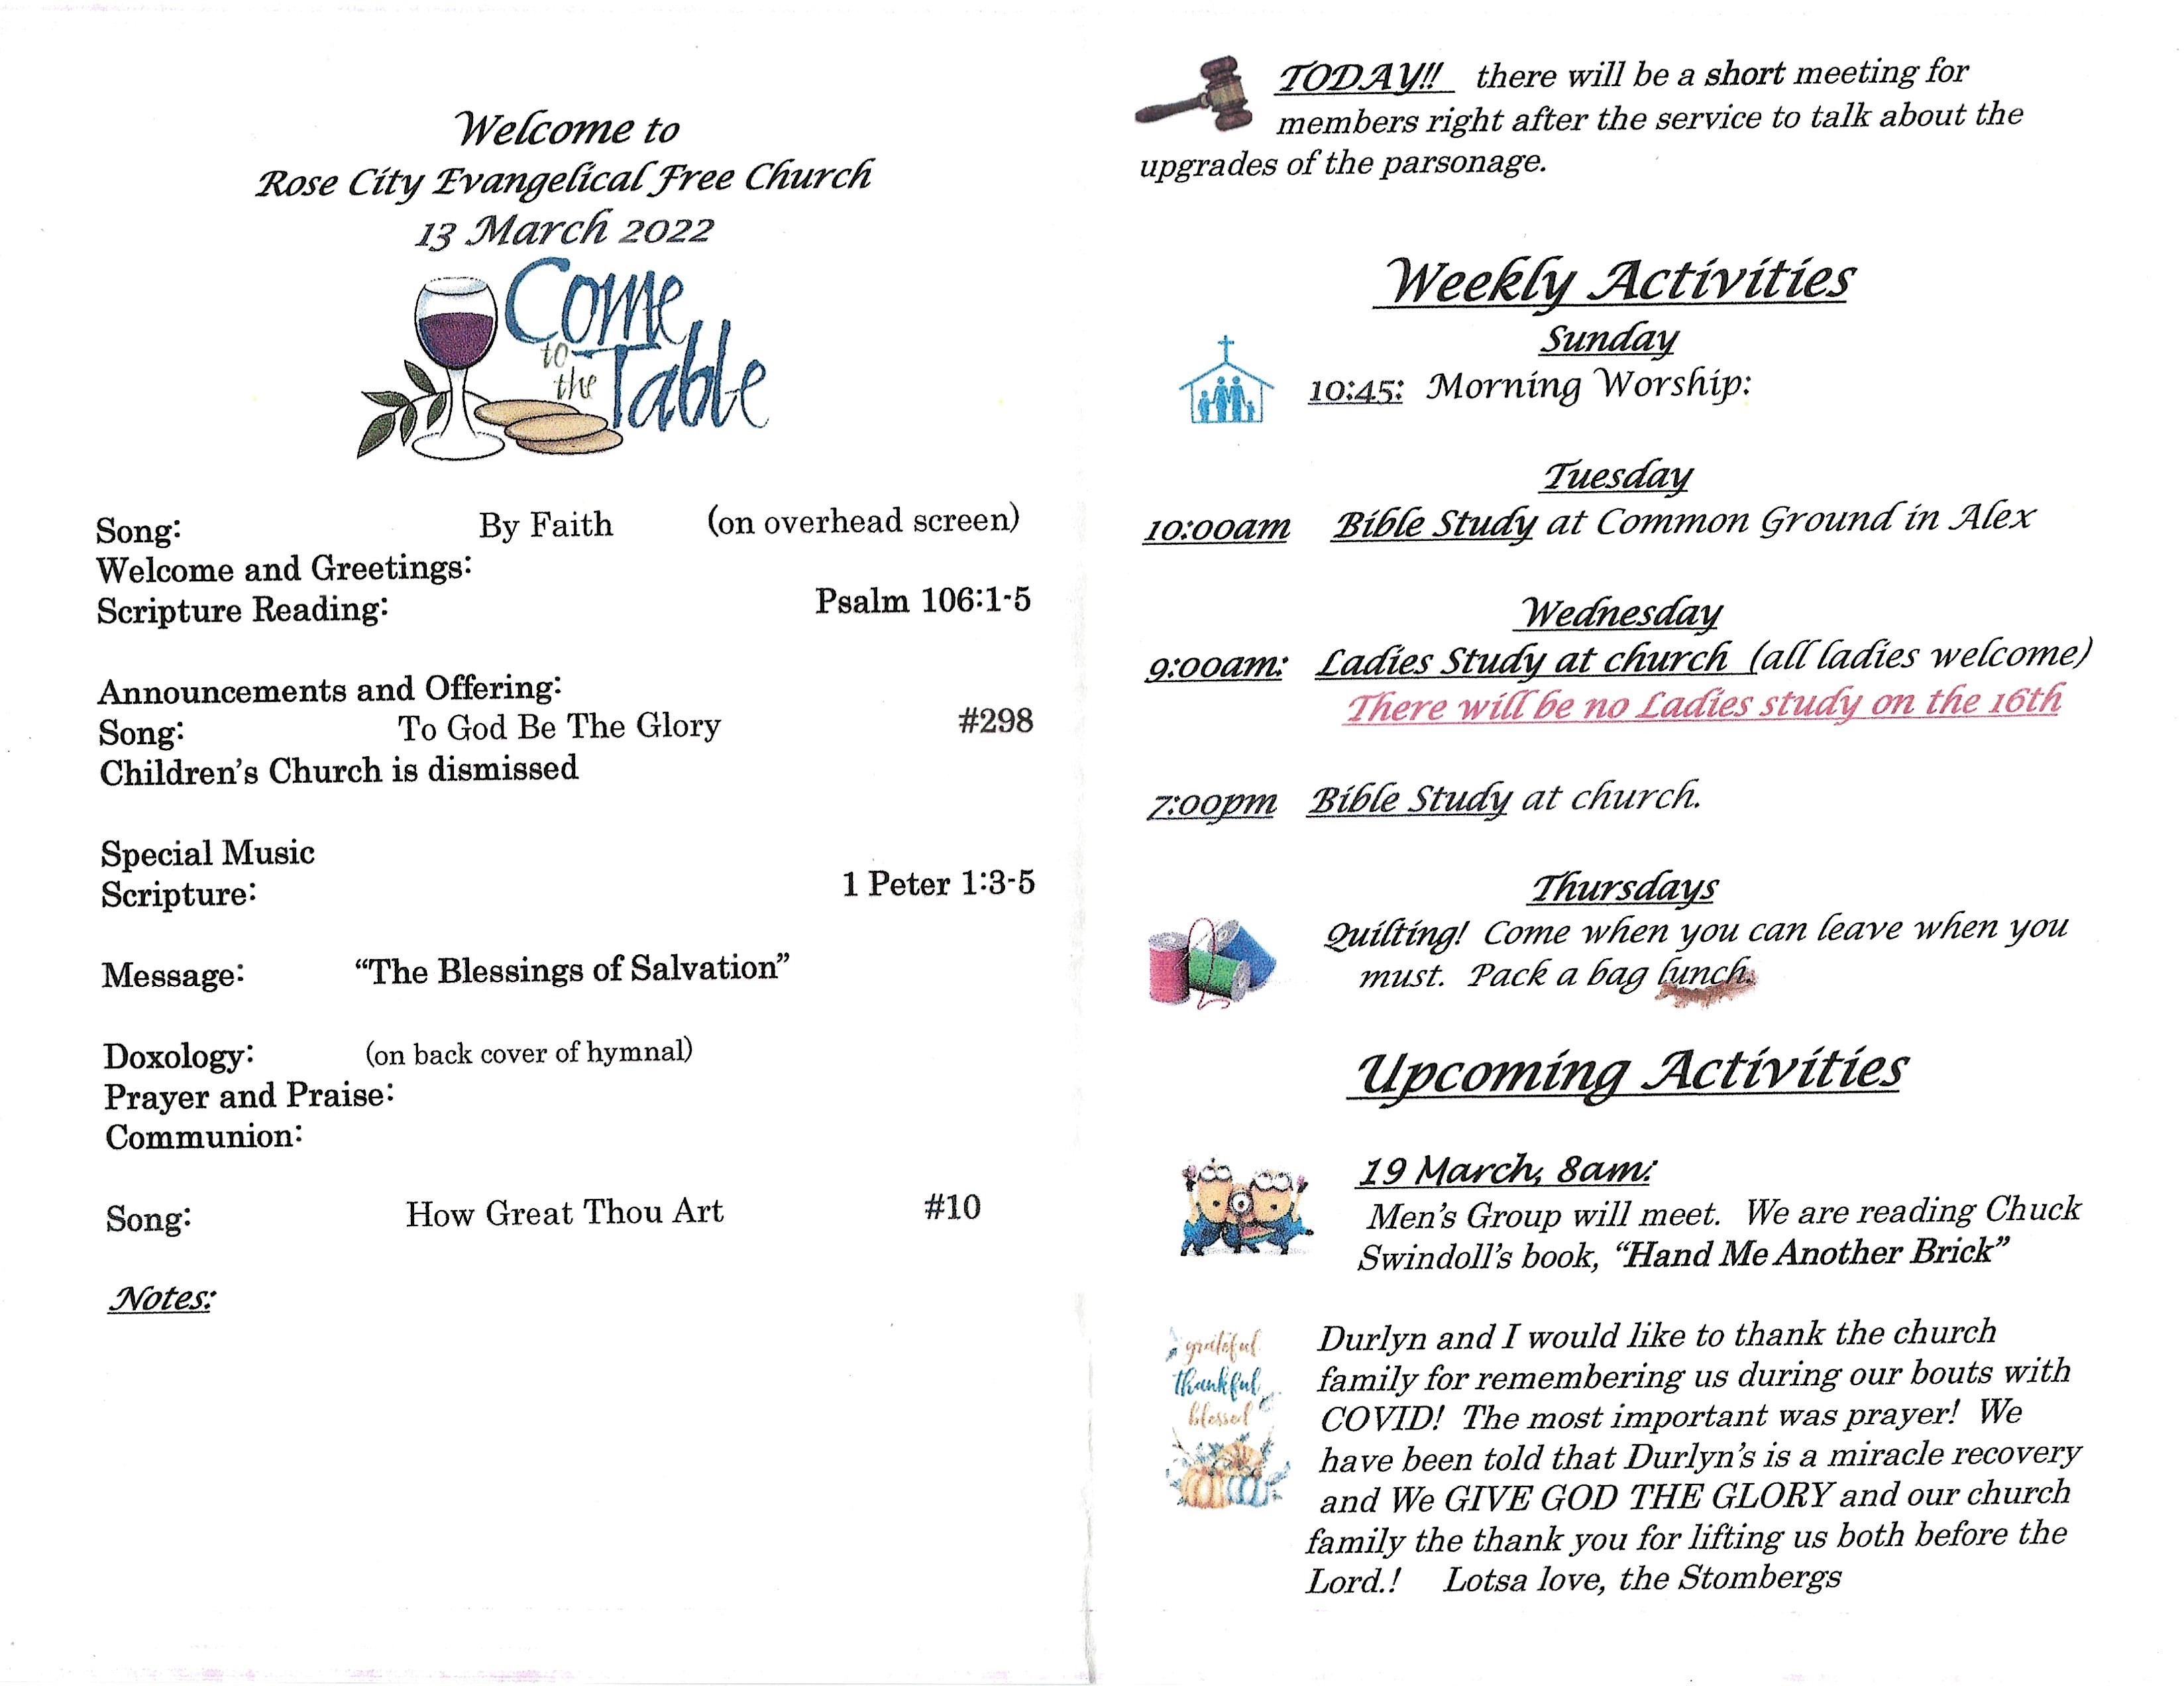 Welcome to
Rose City Evangelical Free Church
13 March 2022
Come
to
the
Table
Song: By Faith (on overhead screen)
Welcome and Greetings:
Scripture Reading: Psalm 106:1-5
Announcements and Offering:
Song: To God Be The Glory #298
Children's Church is dismissed
Special Music
Scripture: 1 Peter 1:3-5
Message: “The Blessings of Salvation”
Doxology: (on back cover of hymnal)
Prayer and Praise:
Communion:
Song: How Great Thou Art #10
Notes:
TODAY!! there will be a short meeting for
members right after the service to talk about the
upgrades of the parsonage.
Weekly Activities
Sunday
10:45: Morning Worship:
Tuesday
10:00am Bible Study at Common Ground in Alex
Wednesday
9:00am: Ladies Study at church (all ladies welcome)
There will be no Ladies study on the 16th
7:00pm Bible Study at church.
Thursdays
Quilting! Come when you can leave when you
must. Pack a bag lunch.
Upcoming Activities
19 March, 8am:
Men's Group will meet. We are reading Chuck
Swindoll's book, “Hand Me Another Brick”
grateful
thankful
blessed
Durlyn and I would like to thank the church
family for remembering us during our bouts with
COVID! The most important was prayer! We
have been told that Durlyn's is a miracle recovery
and We GIVE GOD THE GLORY and our church
family the thank you for lifting us both before the
Lord.! Lotsa love, the Stombergs